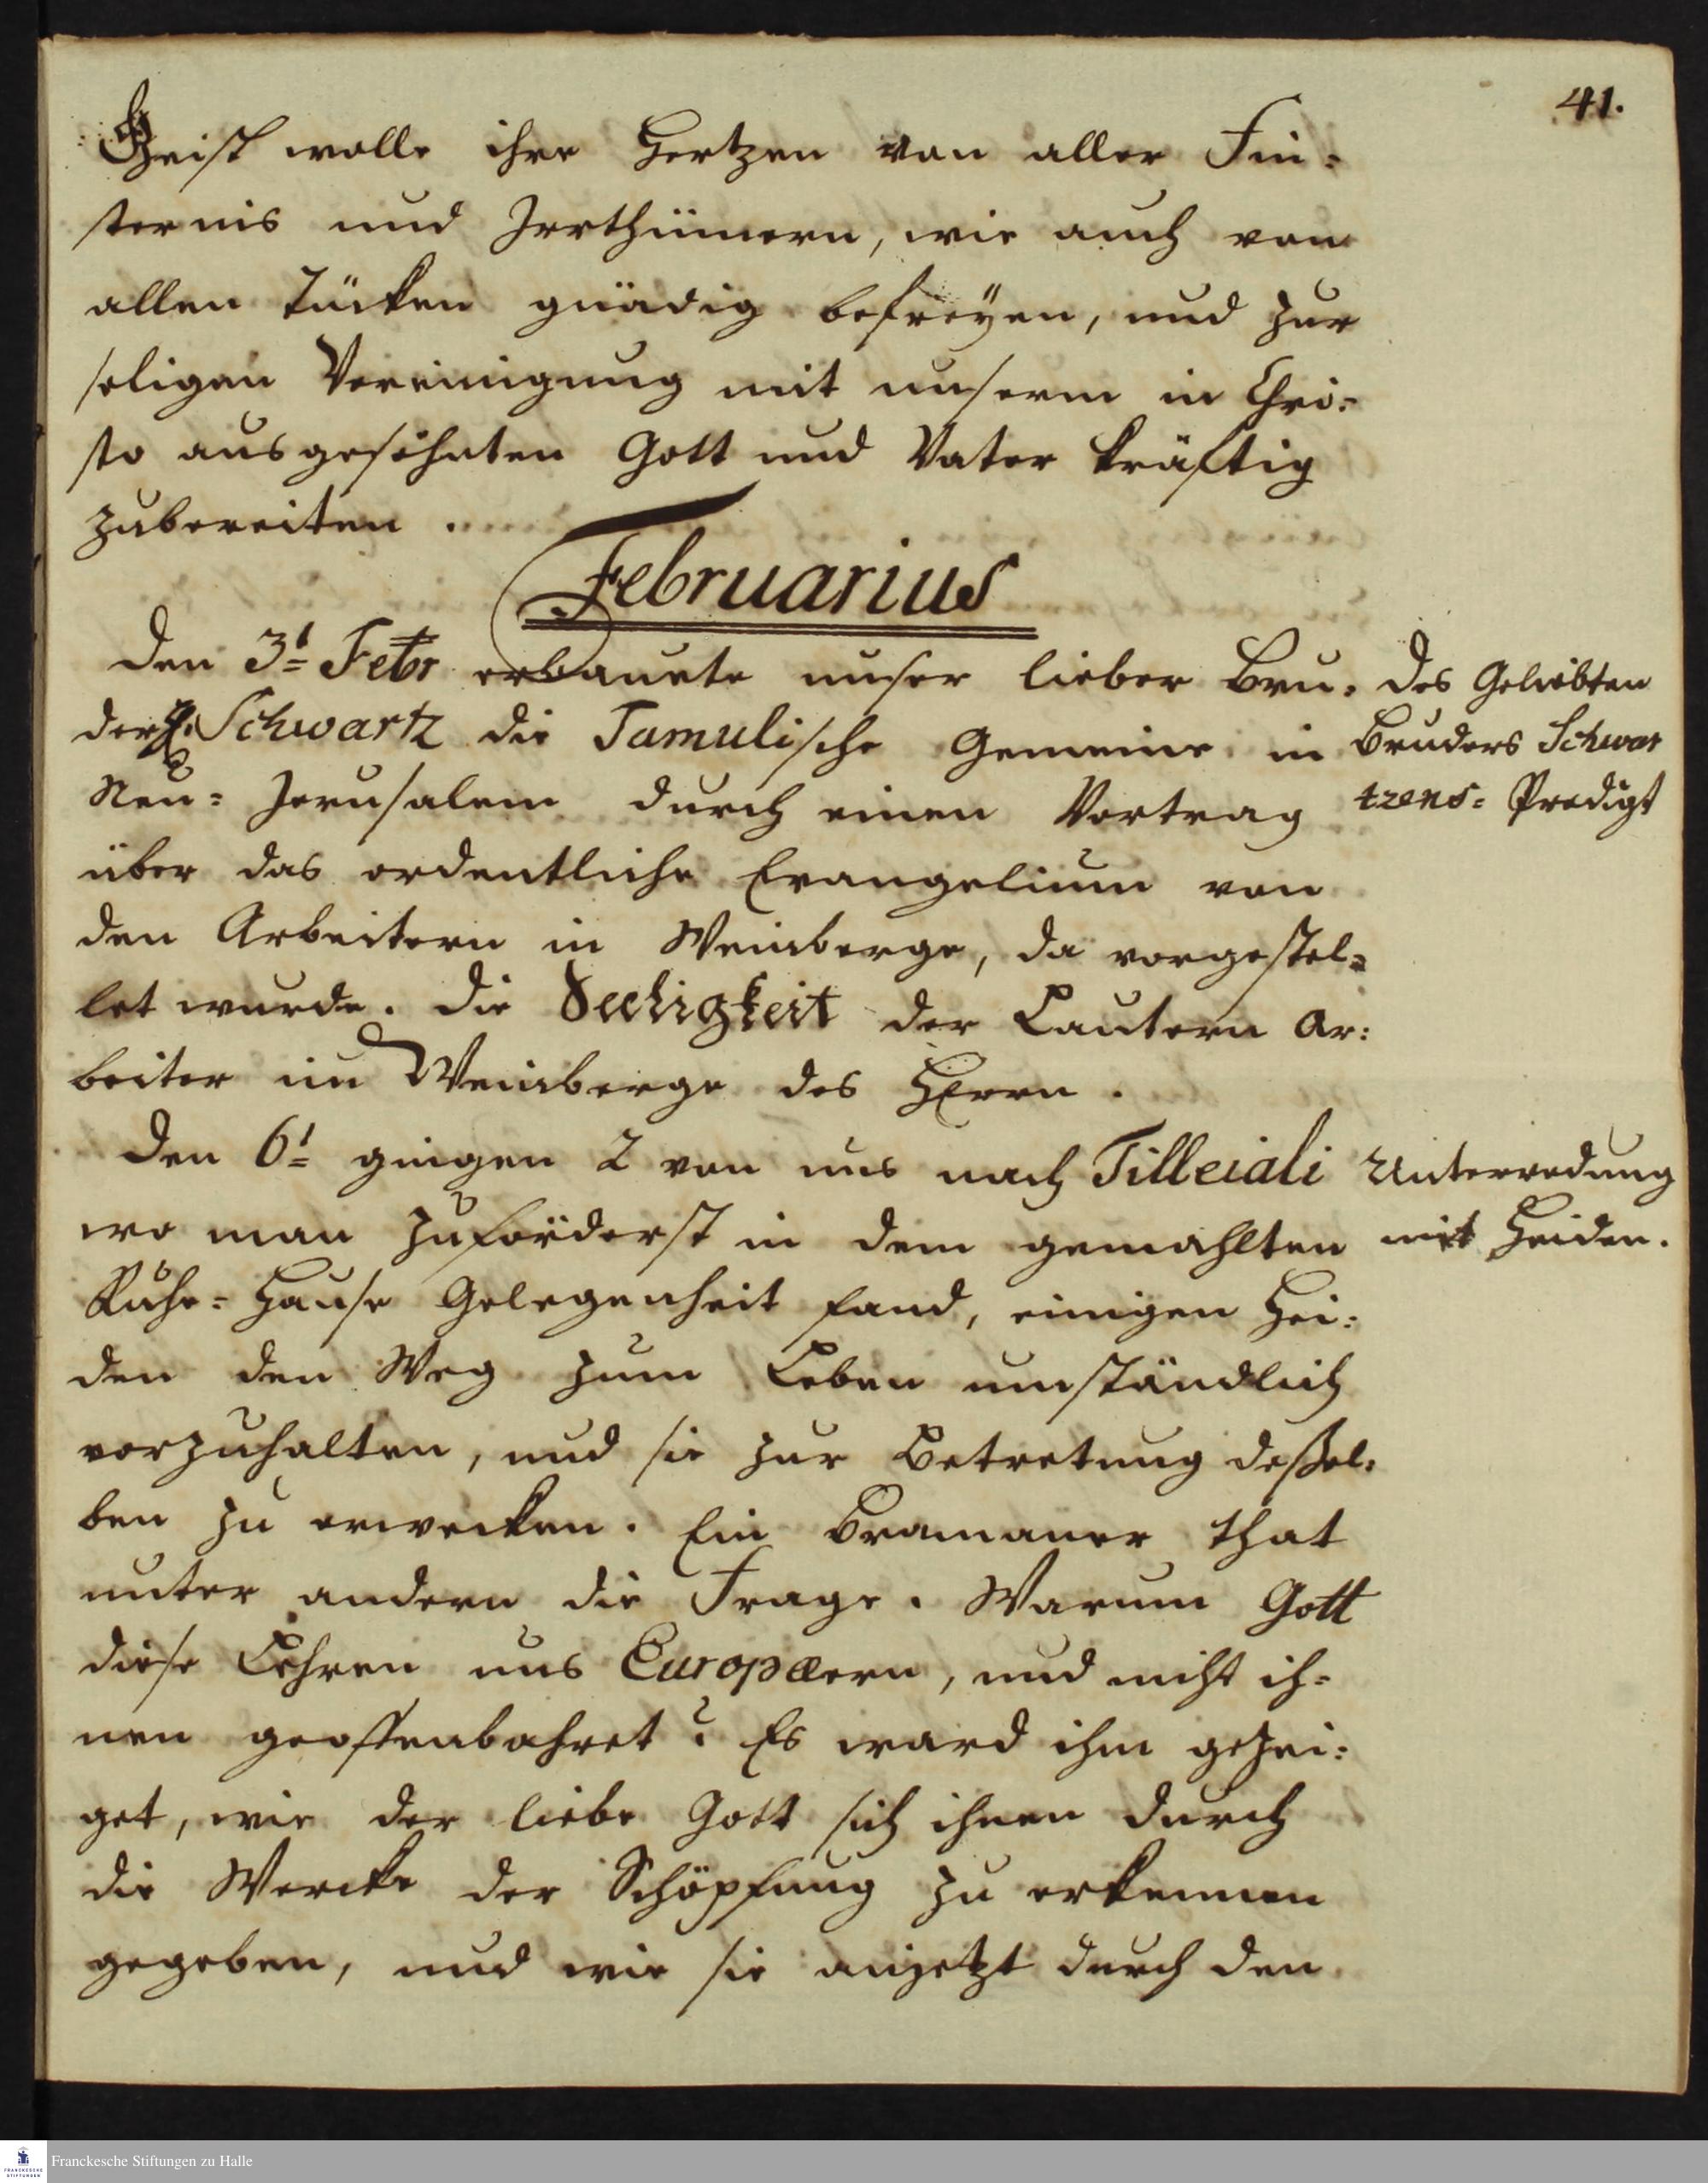 41.
Geist wolle ihre Hertzen von aller Fin-
sternis und Irrthümern, wie auch von
allen Tücken gnädig befreyen, und zur
seligen Vereinigung mit unserm in Chri-
sto ausgesöhnten Gott und Vater kräftig
zubereiten.
Februarius
Den 3t Febr erbauete unser lieber Bru-
der H. Schwartz die Tamulische Gemeine in
Neu-Jerusalem durch einen Vortrag
über das ordentliche Evangelium von
den Arbeitern in Weinberge, da vorgestel-
let wurde. die Seeligkeit der Lautern Ar-
beiter im Weinberge des HErrn.
Des Geliebten
Bruders Schwar
tzens- Predigt
Den 6t gingen 2 von uns nach Tilleiali
wo man zuforderst in dem gemahlten
Ruhe-Hause Gelegenheit fand, einigen Hei-
den den Weg zum Leben umständlich
vorzuhalten, und sie zur Betretung deßel-
ben zu erwecken. Ein Bramaner that
unter andern die Frage. Warum Gott
diese Lehren uns Europæern, und nicht ih-
nen geoffenbahret? Es ward ihm gezei-
get, wie der liebe Gott sich ihnen durch
die Wercke der Schöpfung zu erkennen
gegeben, und wie sie anjetzt durch den
Unterredung
mit Heiden.
Franckesche Stiftungen zu Halle